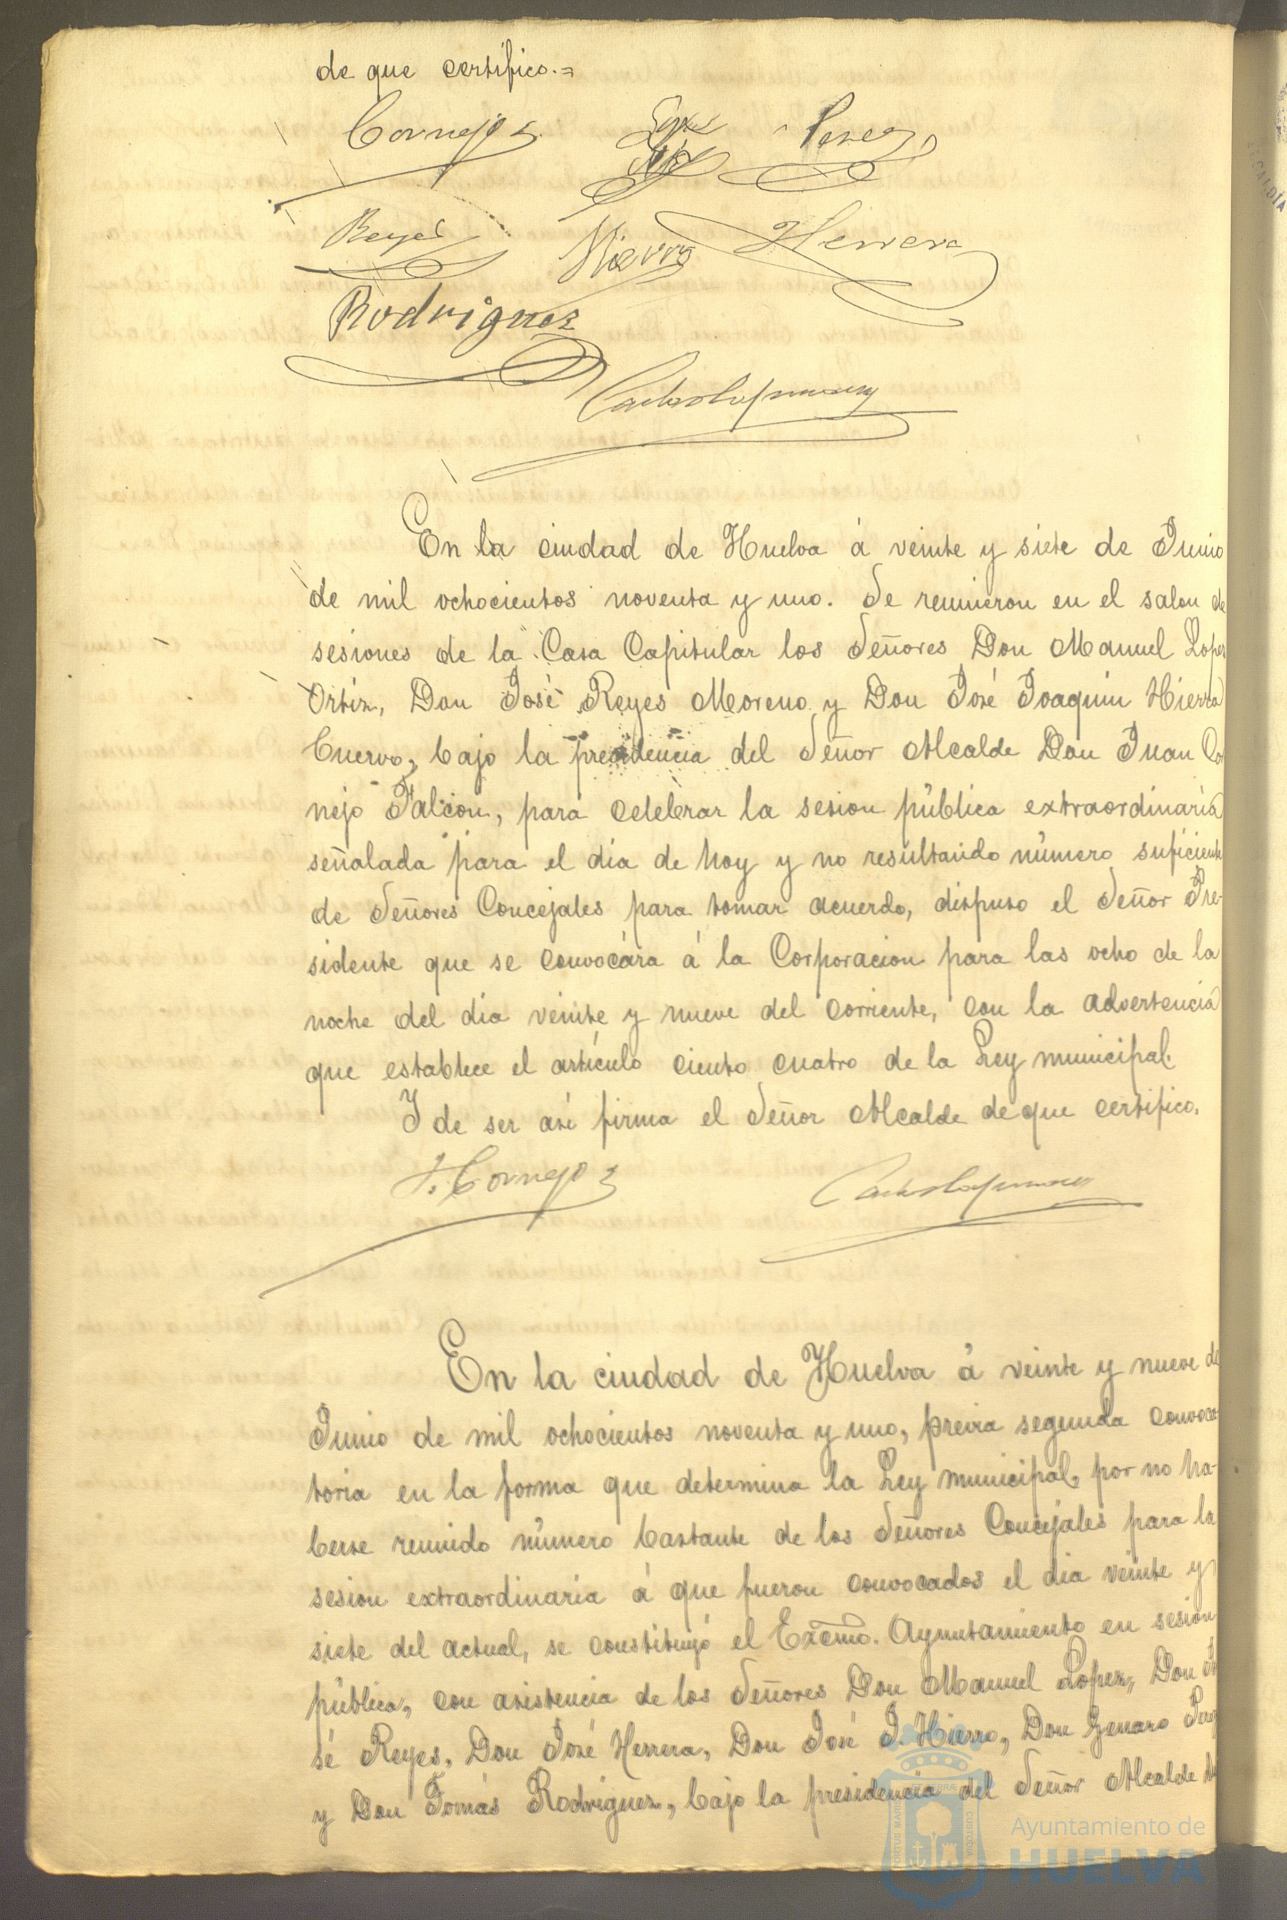 de que certifico.=
Cornejo
Lopez
Perez
Reyes
Hierro
Herrera
Rodriguez
En la ciudad de Huelva á veinte y siete de Junio
de mil ochocientos noventa y uno. Se reunieron en el salon de
sesiones de la Casa Capitular los Señores Don Manuel Lopez
Ortiz, Don José Reyes Moreno y Don José Joaquin Hierro
Cuervo, bajo la presidencia del Señor Alcalde Don Juan Cor
nejo Falcon, para celebrar la sesion pública extraordinaria
señalada para el dia de hoy y no resultando número suficiente
de Señores Concejales para tomar acuerdo, dispuso el Señor Pre-
sidente que se convocára á la Corporacion para las ocho de la
noche del dia veinte y nueve del corriente, con la advertencia
que establece el artículo ciento cuatro de la Ley municipal.
Y de ser asi firma el Señor Alcalde de que certifico.
J. Cornejo
En la ciudad de Huelva á veinte y nueve de
Junio de mil ochocientos noventa y uno, previa segunda convoca
toria en la forma que determina la Ley municipal, por no ha-
berse reunido número bastante de los Señores Concejales para la
sesion extraordinaria á que fueron convocados el dia veinte y
siete del actual, se constituyó el Excmo. Ayuntamiento en sesion
pública, con asistencia de los Señores Don Manuel Lopez, Don Jo
sé Reyes, Don José Herrera, Don José J. Hierro, Don Genaro Perez
y Don Tomás Rodriguez, bajo la presidencia del Señor Alcalde
Ayuntamiento de
HUELVA